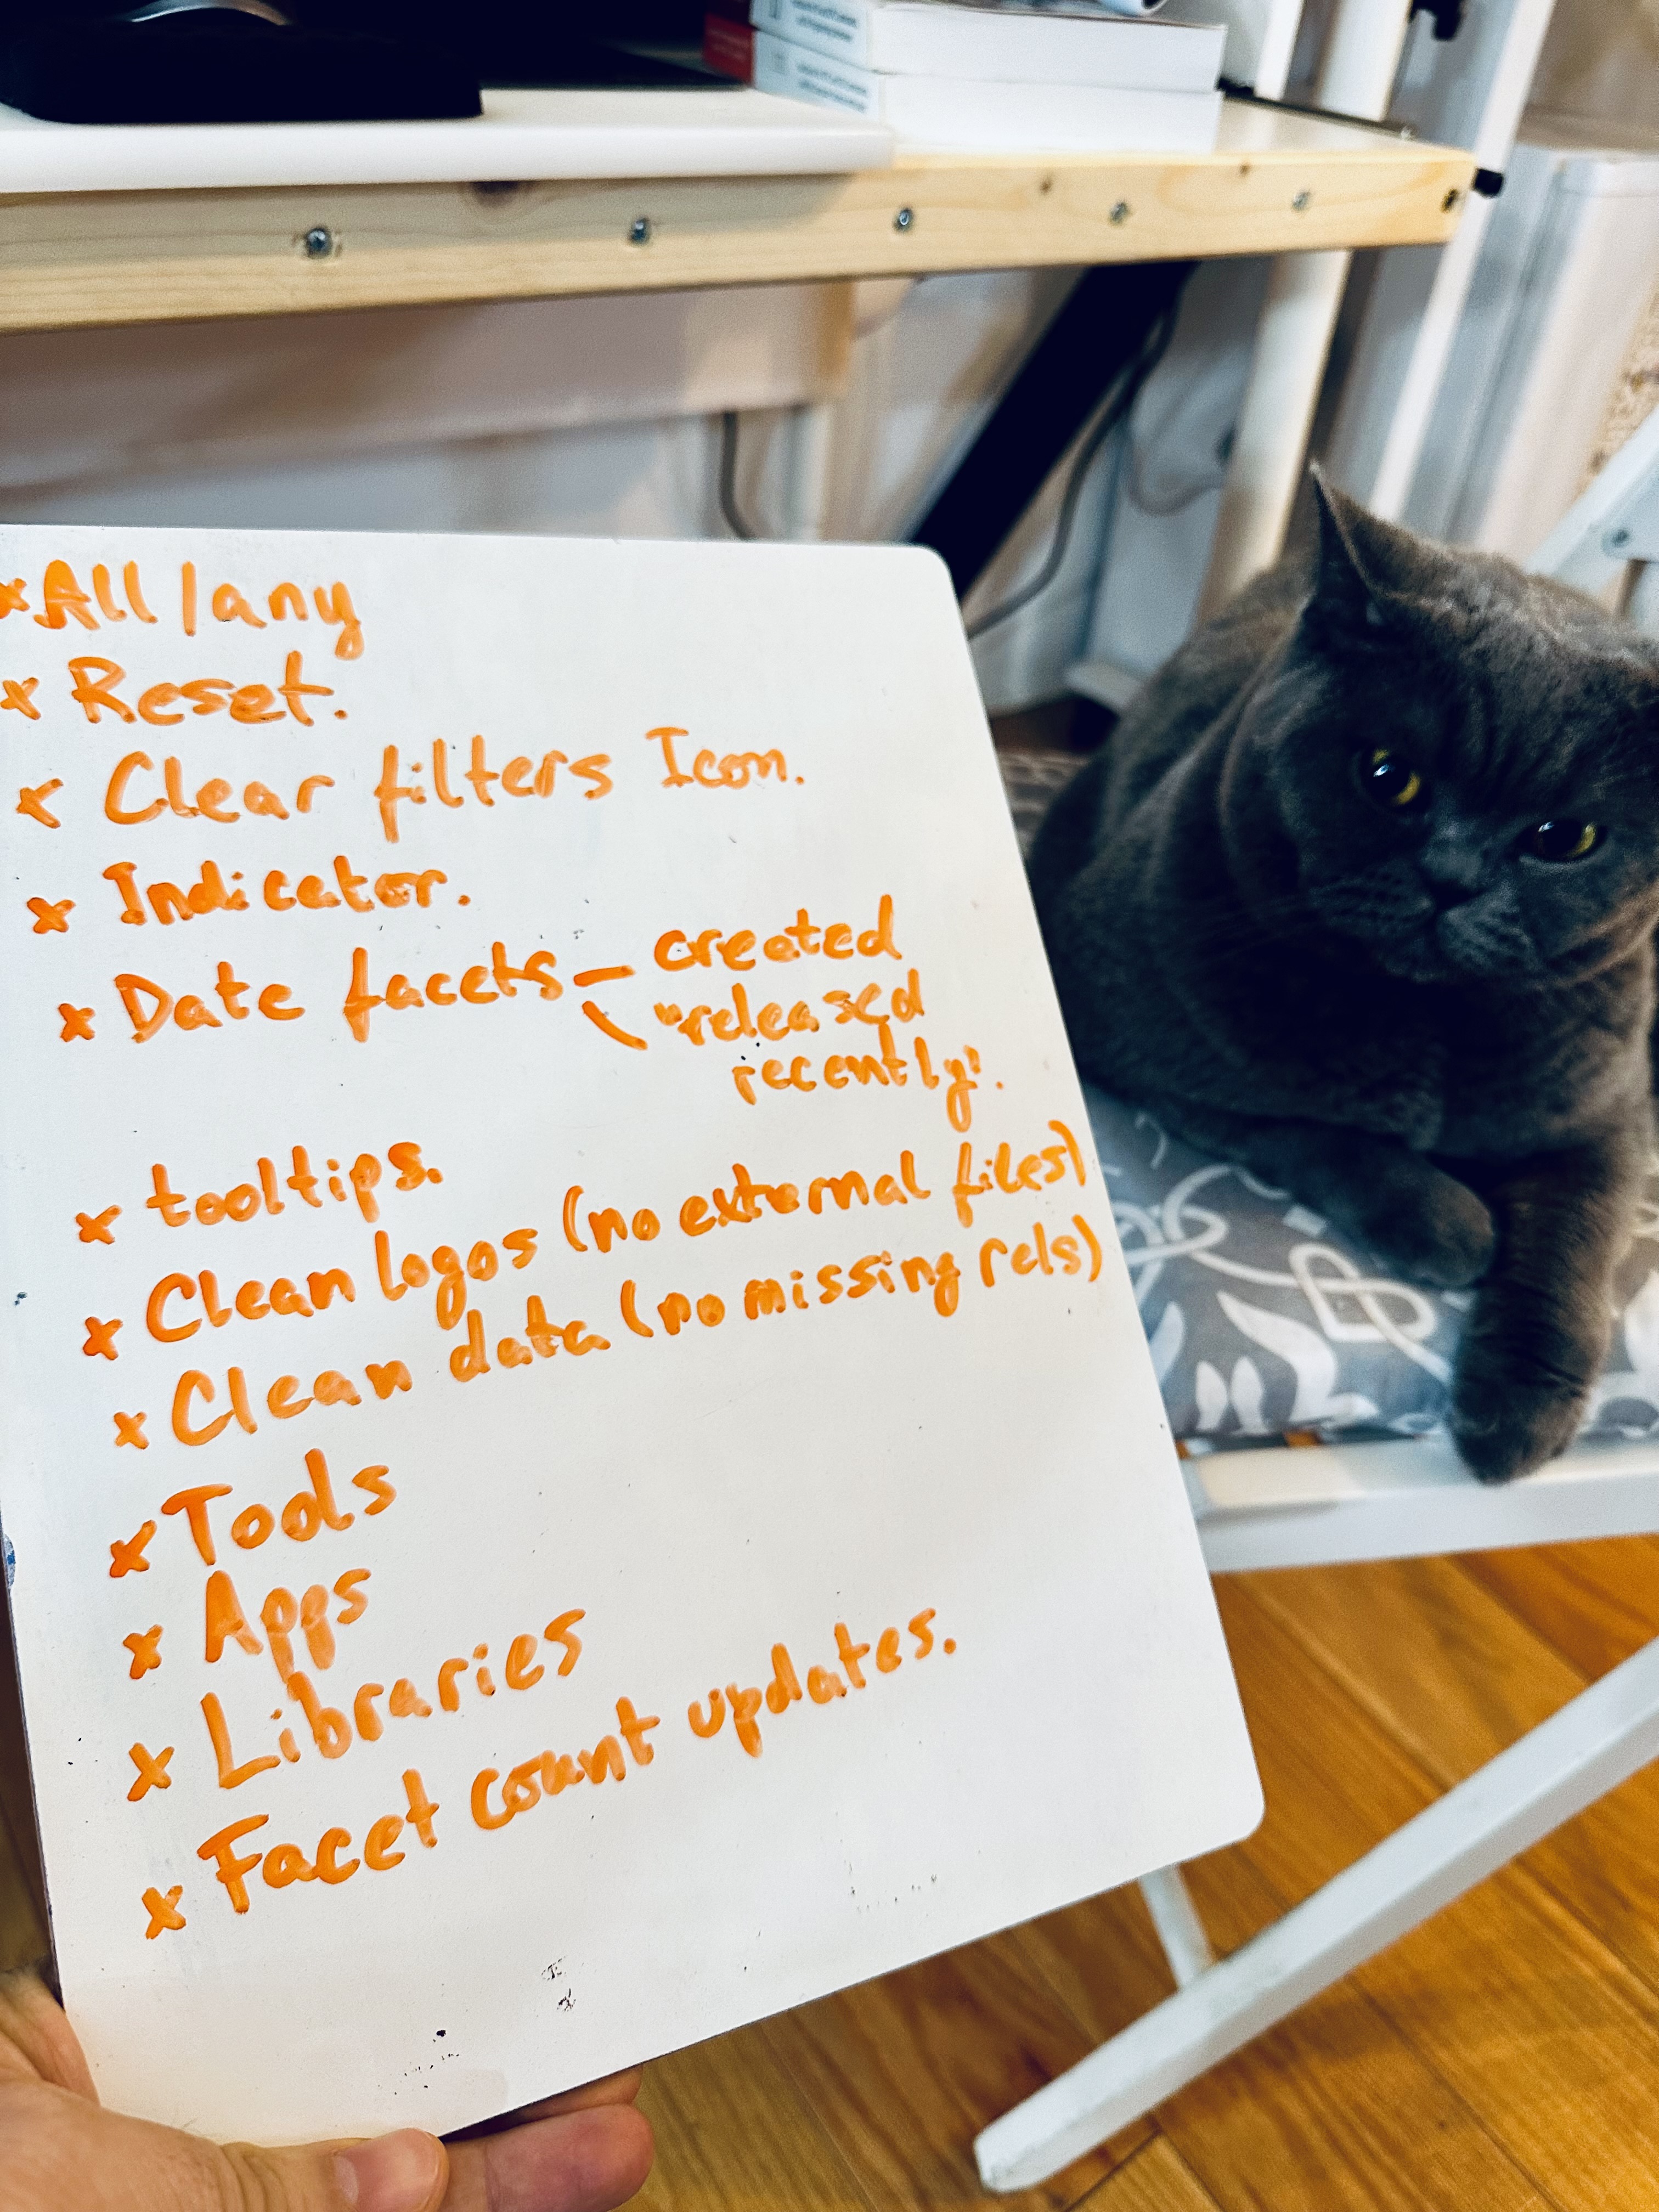 × All/any
× Reset.
× Clear filters Icon.
× Indicator.
× Date facets – created
\ "released
recently".
× tooltips.
× Clean logos (no external files)
× Clean data (no missing rels)
× Tools
× Apps
× Libraries
× Facet count updates.